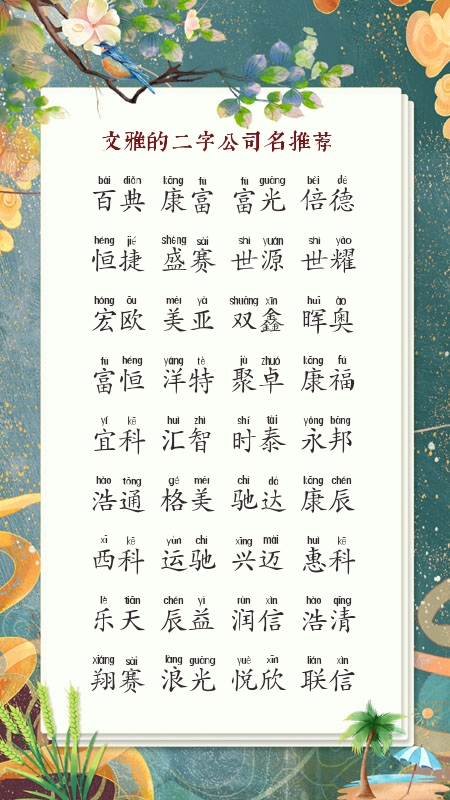 文雅的二字公司名推荐
bǎi diǎn kāng fù fù guāng bèi dé
百典 康富 富光 倍德
héng jié shèng sài shì yuán shì yào
恒捷 盛赛 世源 世耀
hóng ōu měi yà shuāng xīn huī ào
宏欧 美亚 双鑫 晖奥
fù héng yáng tè jù zhuó kāng fú
富恒 洋特 聚卓 康福
yí kē huì zhì shí tài yǒng bāng
宜科 汇智 时泰 永邦
hào tōng gé měi chí dá kāng chén
浩通 格美 驰达 康辰
xī kē yùn chí xīng mài huì kē
西科 运驰 兴迈 惠科
lè tiān chén yì rùn xìn hào qīng
乐天 辰益 润信 浩清
xiáng sài làng guāng yuè xīn lián xìn
翔赛 浪光 悦欣 联信